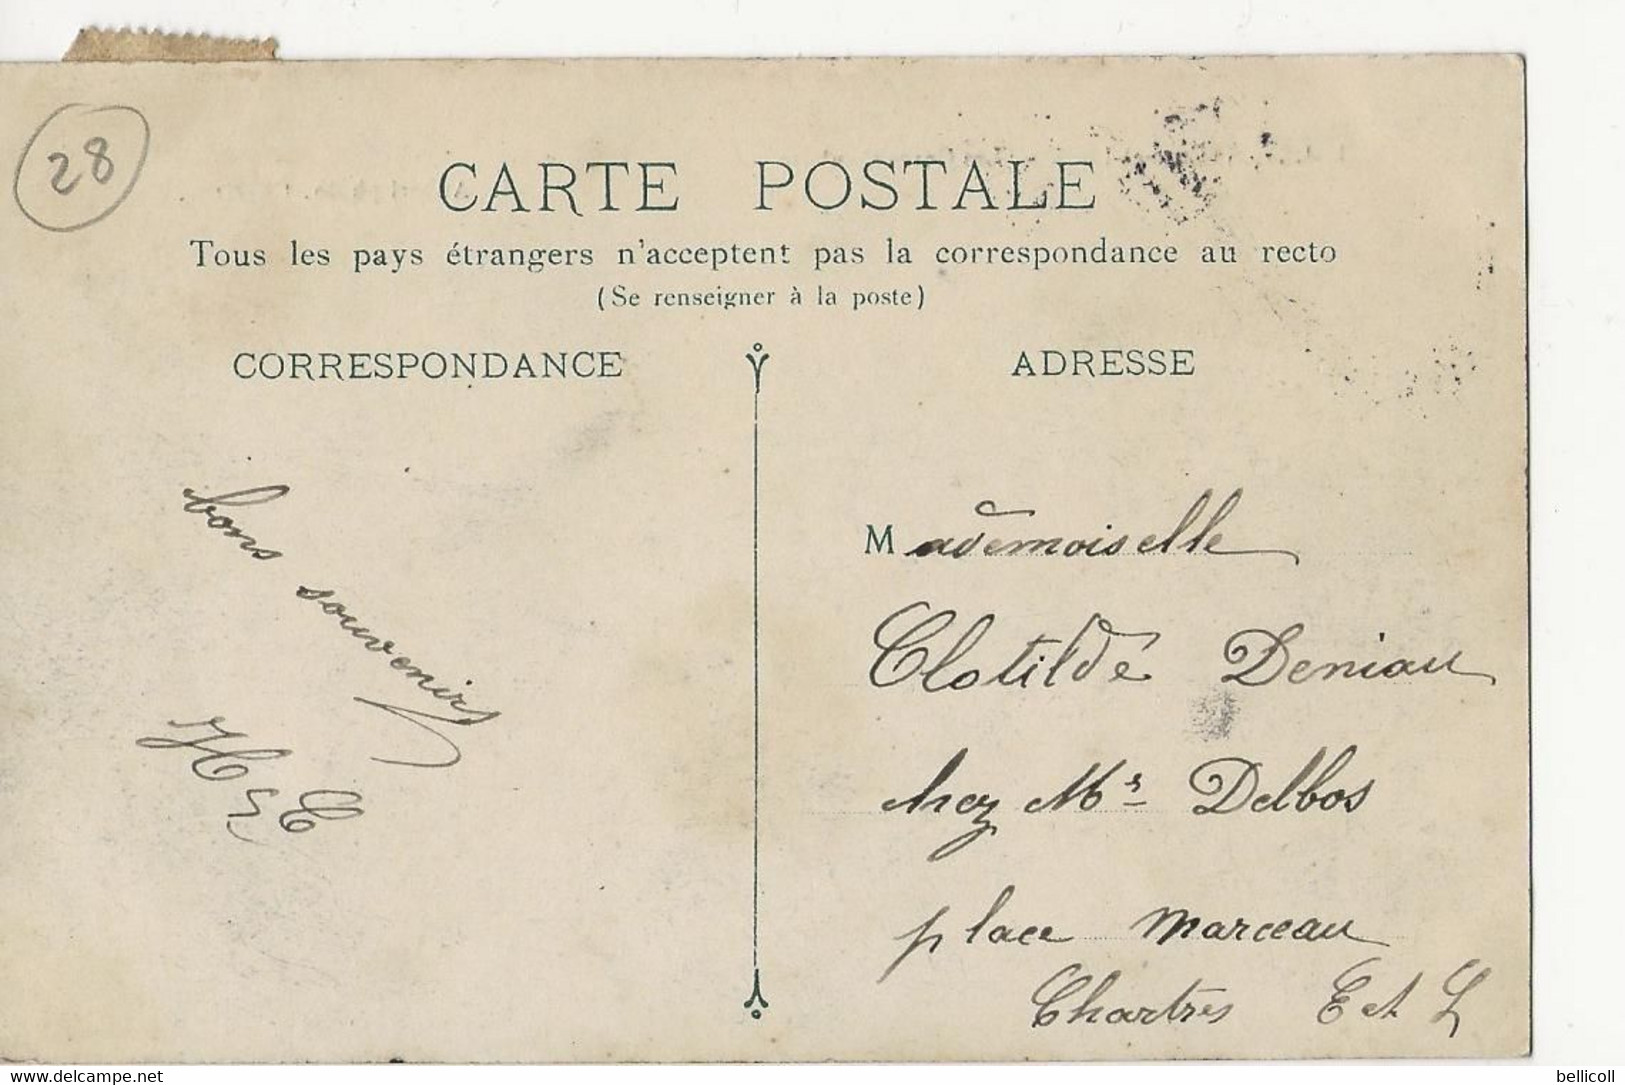 28
CARTE POSTALE
Tous les pays étrangers n'acceptent pas la correspondance au recto
(Se renseigner à la poste)
CORRESPONDANCE
bons souvenirs
ADRESSE
Mademoiselle
Clotilde Deniau
chez Mr Delbos
place Marceau
Chartres E et L
www.delcampe.net
bellicoll